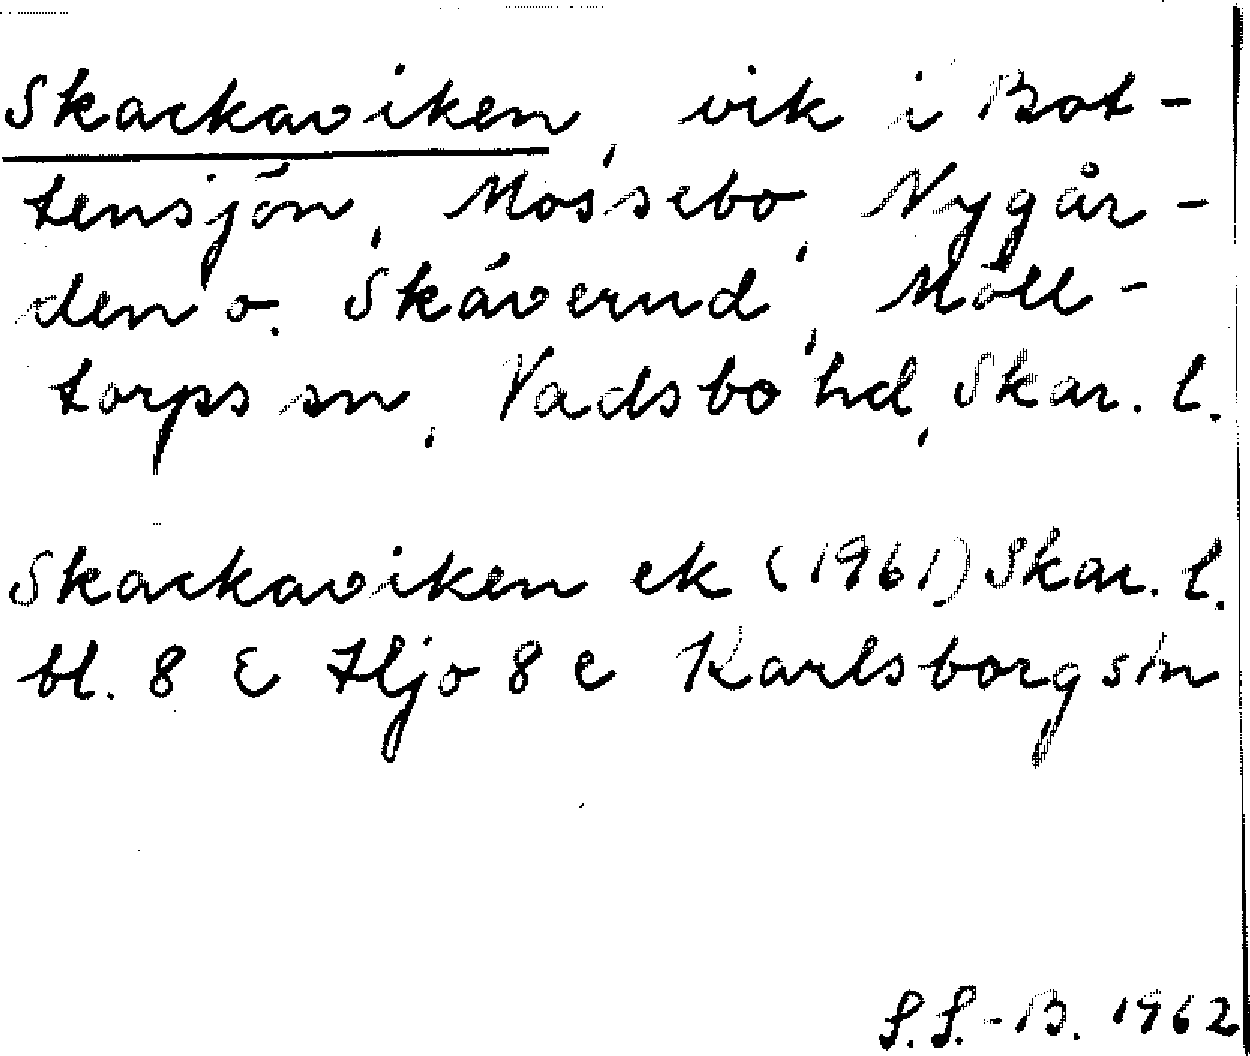 Skackaviken, vik i Bot-
tensjön, Mossebo, Nygår-
den o. Skäverud, Möll-
torps sn, Vadsbo hd, Skar. l.
Skackaviken ek (1961) Skar. l.
bl. 8 E Hjo 8 e Karlsborg s/n
S.S.-B. 1962